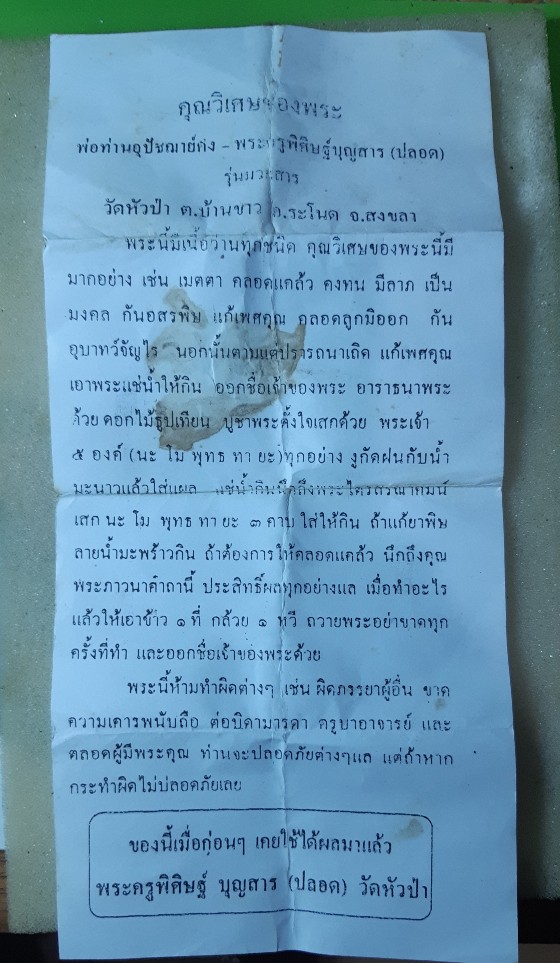 คุณวิเศษของพระ
พ่อท่านอุปัชฌาย์ค่ง - พระครูพิศิษฐ์บุญสาร (ปลอด)
รุ่นมวลสาร
วัดหัวป่า ต.บ้านขาว อ.ระโนด จ.สงขลา
พระนี้มีเนื้อว่านทุกชนิด คุณวิเศษของพระนี้มี
มากอย่าง เช่น เมตตา คลอดแคล้ว คงทน มีลาภ เป็น
มงคล กันอสรพิษ แก้เพศคุณ คลอดลูกมิออก กัน
อุบาทว์จัญไร นอกนั้นตามแต่ปรารถนาเถิด แก้เพศคุณ
เอาพระแช่น้ำให้กิน ออกชื่อเจ้าของพระ อาราธนาพระ
ด้วย ดอกไม้ธูปเทียน บูชาพระตั้งใจเสกด้วย พระเจ้า
๕ องค์ (นะ โม พุทธ ทา ยะ)ทุกอย่าง งูกัดฝนกับน้ำ
มะนาวแล้วใส่แผล แช่น้ำกินนึกถึงพระไตรสรณาคมน์
เสก นะ โม พุทธ ทา ยะ ๓ คาบ ใส่ให้กิน ถ้าแก้ยาพิษ
ลายน้ำมะพร้าวกิน ถ้าต้องการให้คลอดแคล้ว นึกถึงคุณ
พระภาวนาคำถานี้ ประสิทธิ์ผลทุกอย่างแล เมื่อทำอะไร
แล้วให้เอาข้าว ๑ ที่ กล้วย ๑ หวี ถวายพระอย่าขาดทุก
ครั้งที่ทำ และออกชื่อเจ้าของพระด้วย
พระนี้ห้ามทำผิดต่างๆ เช่น ผิดภรรยาผู้อื่น ขาด
ความเคารพนับถือ ต่อบิดามารดา ครูบาอาจารย์ และ
ตลอดผู้มีพระคุณ ท่านจะปลอดภัยต่างๆแล แต่ถ้าหาก
กระทำผิดไม่ปลอดภัยเลย
ของนี้เมื่อก่อนๆ เคยใช้ได้ผลมาแล้ว
พระครูพิศิษฐ์ บุญสาร (ปลอด) วัดหัวป่า